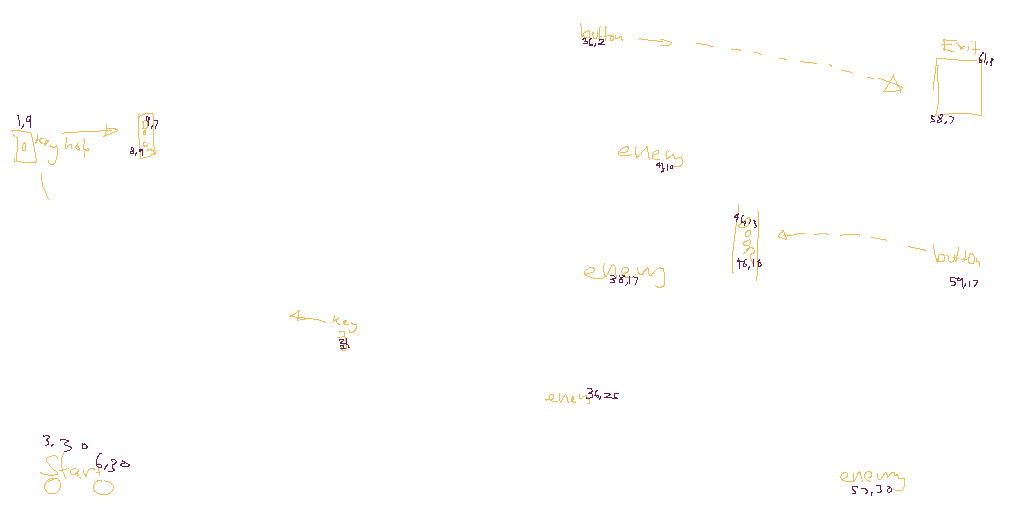 button
36,2
Exit
61,3
58,7
1,9
9,7
key hole
8,9
enemy
43,10
46,13
46,16
button
59,17
enemy
38,17
key
21
enemy 36,25
3,30
6,30
Start
enemy
53,30